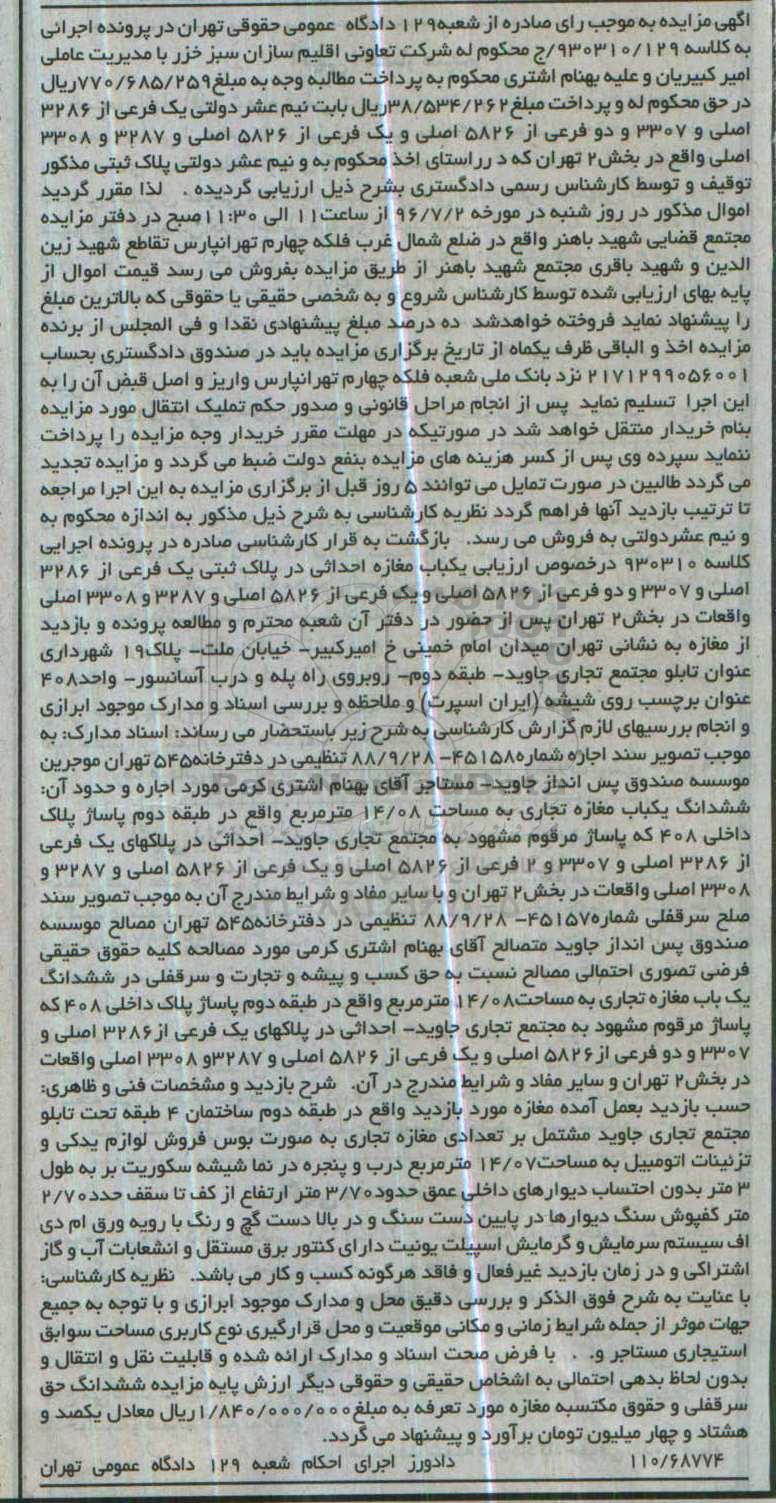 آگهی مزایده به موجب رای صادره از شعبه۱۲۹ دادگاه عمومی حقوقی تهران در پرونده اجرائی
به کلاسه ۹۳۰۳۱۰/۱۲۹/ج محکوم له شرکت تعاونی اقلیم سازان سبز خزر با مدیریت عاملی
امیر کبیریان و علیه بهنام اشتری محکوم به پرداخت مطالبه وجه به مبلغ۷۷۰/۶۸۵/۲۵۹ریال
در حق محکوم له و پرداخت مبلغ۳۸/۵۳۴/۲۶۲ریال بابت نیم عشر دولتی یک فرعی از ۳۲۸۶
اصلی و ۳۳۰۷ و دو فرعی از ۵۸۲۶ اصلی و یک فرعی از ۵۸۲۶ اصلی و ۳۲۸۷ و ۳۳۰۸
اصلی واقع در بخش۲ تهران که د رراستای اخذ محکوم به و نیم عشر دولتی پلاک ثبتی مذکور
توقیف و توسط کارشناس رسمی دادگستری بشرح ذیل ارزیابی گردیده . لذا مقرر گردید
اموال مذکور در روز شنبه در مورخه ۹۶/۷/۲ از ساعت۱۱ الی ۱۱:۳۰صبح در دفتر مزایده
مجتمع قضایی شهید باهنر واقع در ضلع شمال غرب فلکه چهارم تهرانپارس تقاطع شهید زین
الدین و شهید باقری مجتمع شهید باهنر از طریق مزایده بفروش می رسد قیمت اموال از
پایه بهای ارزیابی شده توسط کارشناس شروع و به شخصی حقیقی یا حقوقی که بالاترین مبلغ
را پیشنهاد نماید فروخته خواهدشد ده درصد مبلغ پیشنهادی نقدا و فی المجلس از برنده
مزایده اخذ و الباقی ظرف یکماه از تاریخ برگزاری مزایده باید در صندوق دادگستری بحساب
۲۱۷۱۲۹۹۰۵۶۰۰۱ نزد بانک ملی شعبه فلکه چهارم تهرانپارس واریز و اصل قبض آن را به
این اجرا تسلیم نماید پس از انجام مراحل قانونی و صدور حکم تملیک انتقال مورد مزایده
بنام خریدار منتقل خواهد شد در صورتیکه در مهلت مقرر خریدار وجه مزایده را پرداخت
ننماید سپرده وی پس از کسر هزینه های مزایده بنفع دولت ضبط می گردد و مزایده تجدید
می گردد طالبین در صورت تمایل می توانند ۵ روز قبل از برگزاری مزایده به این اجرا مراجعه
تا ترتیب بازدید آنها فراهم گردد نظریه کارشناسی به شرح ذیل مذکور به اندازه محکوم به
و نیم عشردولتی به فروش می رسد. بازگشت به قرار کارشناسی صادره در پرونده اجرایی
کلاسه ۹۳۰۳۱۰ درخصوص ارزیابی یکباب مغازه احداثی در پلاک ثبتی یک فرعی از ۳۲۸۶
اصلی و ۳۳۰۷ و دو فرعی از ۵۸۲۶ اصلی و یک فرعی از ۵۸۲۶ اصلی و ۳۲۸۷ و ۳۳۰۸ اصلی
واقعات در بخش۲ تهران پس از حضور در دفتر آن شعبه محترم و مطالعه پرونده و بازدید
از مغازه به نشانی تهران میدان امام خمینی خ امیرکبیر- خیابان ملت- پلاک۱۹ شهرداری
عنوان تابلو مجتمع تجاری جاوید- طبقه دوم- روبروی راه پله و درب آسانسور- واحد۴۰۸
عنوان برچسب روی شیشه (ایران اسپرت) و ملاحظه و بررسی اسناد و مدارک موجود ابرازی
و انجام بررسیهای لازم گزارش کارشناسی به شرح زیر باستحضار می رساند: اسناد مدارک: به
موجب تصویر سند اجاره شماره۴۵۱۵۸- ۸۸/۹/۲۸ تنظیمی در دفترخانه۵۴۵ تهران موجرین
موسسه صندوق پس انداز جاوید- مستاجر آقای بهنام اشتری کرمی مورد اجاره و حدود آن:
ششدانگ یکباب مغازه تجاری به مساحت ۱۴/۰۸ مترمربع واقع در طبقه دوم پاساژ پلاک
داخلی ۴۰۸ که پاساژ مرقوم مشهود به مجتمع تجاری جاوید- احداثی در پلاکهای یک فرعی
از ۳۲۸۶ اصلی و ۳۳۰۷ و ۲ فرعی از ۵۸۲۶ اصلی و یک فرعی از ۵۸۲۶ اصلی و ۳۲۸۷ و
۳۳۰۸ اصلی واقعات در بخش۲ تهران و با سایر مفاد و شرایط مندرج آن به موجب تصویر سند
صلح سرقفلی شماره۴۵۱۵۷- ۸۸/۹/۲۸ تنظیمی در دفترخانه۵۴۵ تهران مصالح موسسه
صندوق پس انداز جاوید متصالح آقای بهنام اشتری کرمی مورد مصالحه کلیه حقوق حقیقی
فرضی تصوری احتمالی مصالح نسبت به حق کسب و پیشه و تجارت و سرقفلی در ششدانگ
یک باب مغازه تجاری به مساحت۱۴/۰۸ مترمربع واقع در طبقه دوم پاساژ پلاک داخلی ۴۰۸ که
پاساژ مرقوم مشهود به مجتمع تجاری جاوید- احداثی در پلاکهای یک فرعی از۳۲۸۶ اصلی و
۳۳۰۷ و دو فرعی از۵۸۲۶ اصلی و یک فرعی از ۵۸۲۶ اصلی و ۳۲۸۷و ۳۳۰۸ اصلی واقعات
در بخش۲ تهران و سایر مفاد و شرایط مندرج در آن. شرح بازدید و مشخصات فنی و ظاهری:
حسب بازدید بعمل آمده مغازه مورد بازدید واقع در طبقه دوم ساختمان ۴ طبقه تحت تابلو
مجتمع تجاری جاوید مشتمل بر تعدادی مغازه تجاری به صورت بوس فروش لوازم یدکی و
تزئینات اتومبیل به مساحت۱۴/۰۷ مترمربع درب و پنجره در نما شیشه سکوریت بر به طول
۳ متر بدون احتساب دیوارهای داخلی عمق حدود۳/۷۰ متر ارتفاع از کف تا سقف حدد۲/۷۰
متر کفپوش سنگ دیوارها در پایین دست سنگ و در بالا دست گچ و رنگ با رویه ورق ام دی
اف سیستم سرمایش و گرمایش اسپیلت یونیت دارای کنتور برق مستقل و انشعابات آب و گاز
اشتراکی و در زمان بازدید غیرفعال و فاقد هرگونه کسب و کار می باشد. نظریه کارشناسی:
با عنایت به شرح فوق الذکر و بررسی دقیق محل و مدارک موجود ابرازی و با توجه به جمیع
جهات موثر از جمله شرایط زمانی و مکانی موقعیت و محل قرارگیری نوع کاربری مساحت سوابق
استیجاری مستاجر و. . با فرض صحت اسناد و مدارک ارائه شده و قابلیت نقل و انتقال و
بدون لحاظ بدهی احتمالی به اشخاص حقیقی و حقوقی دیگر ارزش پایه مزایده ششدانگ حق
سرقفلی و حقوق مکتسبه مغازه مورد تعرفه به مبلغ۱/۸۴۰/۰۰۰/۰۰۰ریال معادل یکصد و
هشتاد و چهار میلیون تومان برآورد و پیشنهاد می گردد.
۱۱۰/۶۸۷۷۴ دادورز اجرای احکام شعبه ۱۲۹ دادگاه عمومی تهران